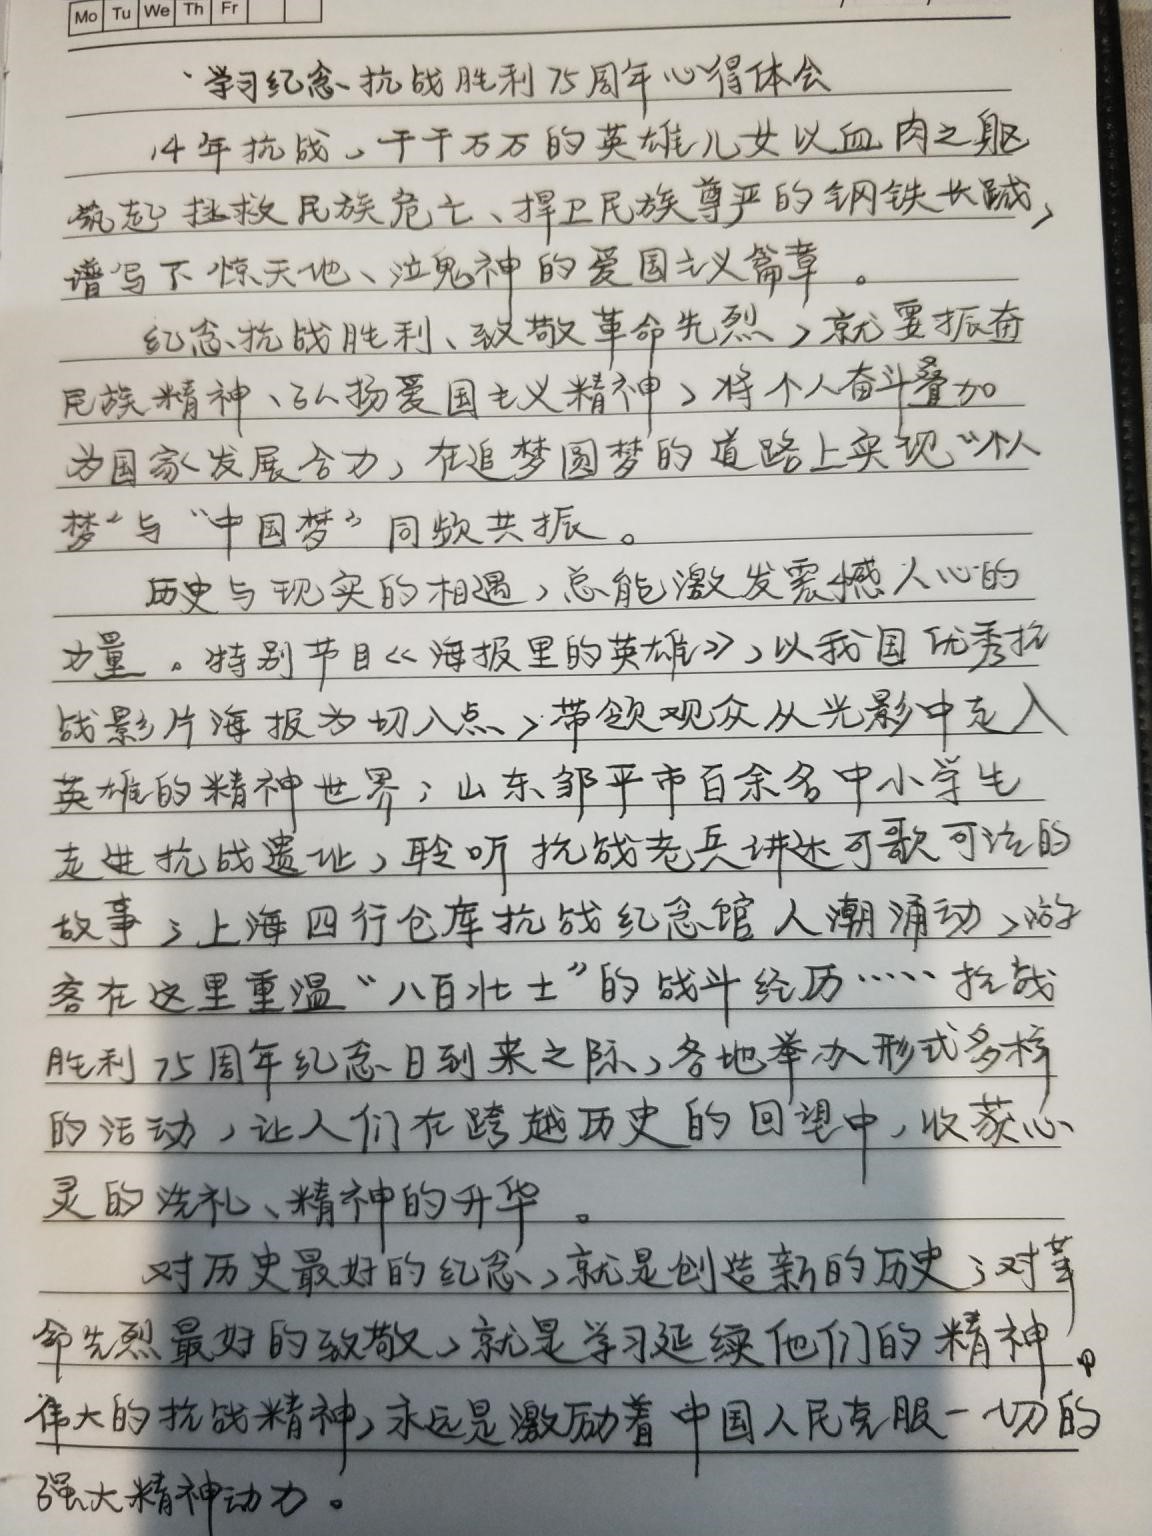 Mo Tu We Th Fr
学习纪念抗战胜利75周年心得体会
14年抗战，千千万万的英雄儿女以血肉之躯
筑起拯救民族危亡、捍卫民族尊严的钢铁长城，
谱写下惊天地、泣鬼神的爱国主义篇章。
纪念抗战胜利、致敬革命先烈，就要振奋
民族精神、弘扬爱国主义精神，将个人奋斗叠加
为国家发展合力，在追梦圆梦的道路上实现“个人
梦”与“中国梦”同频共振。
历史与现实的相遇，总能激发震撼人心的
力量。特别节目《海报里的英雄》，以我国优秀抗
战影片海报为切入点，带领观众从光影中走入
英雄的精神世界；山东邹平市百余名中小学生
走进抗战遗址，聆听抗战老兵讲述可歌可泣的
故事；上海四行仓库抗战纪念馆人潮涌动，游
客在这里重温“八百壮士”的战斗经历……抗战
胜利75周年纪念日到来之际，各地举办形式多样
的活动，让人们在跨越历史的回望中，收获心
灵的洗礼、精神的升华。
对历史最好的纪念，就是创造新的历史；对革
命先烈最好的致敬，就是学习延续他们的精神。
伟大的抗战精神，永远是激励着中国人民克服一切的
强大精神动力。